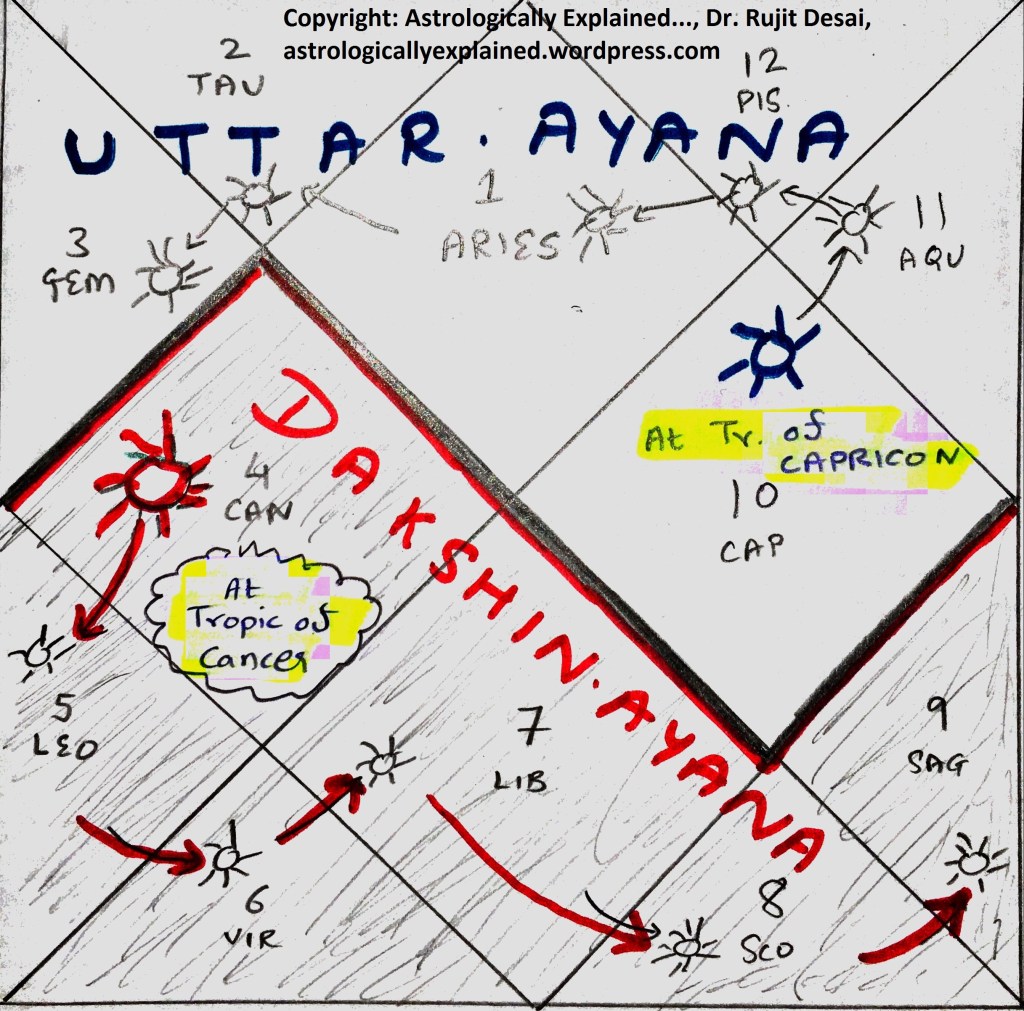 Copyright: Astrologically Explained..., Dr. Rujit Desai,
astrologicallyexplained.wordpress.com
2
TAU
12
PIS.
UTTAR. AYANA
1
ARIES
11
AQU
3
GEM
At Tr. of
CAPRICON
10
CAP
DAKSHIN. AYANA
4
CAN
At
Tropic of
Cancer
5
LEO
7
LIB
9
SAG
6
VIR
8
SCO